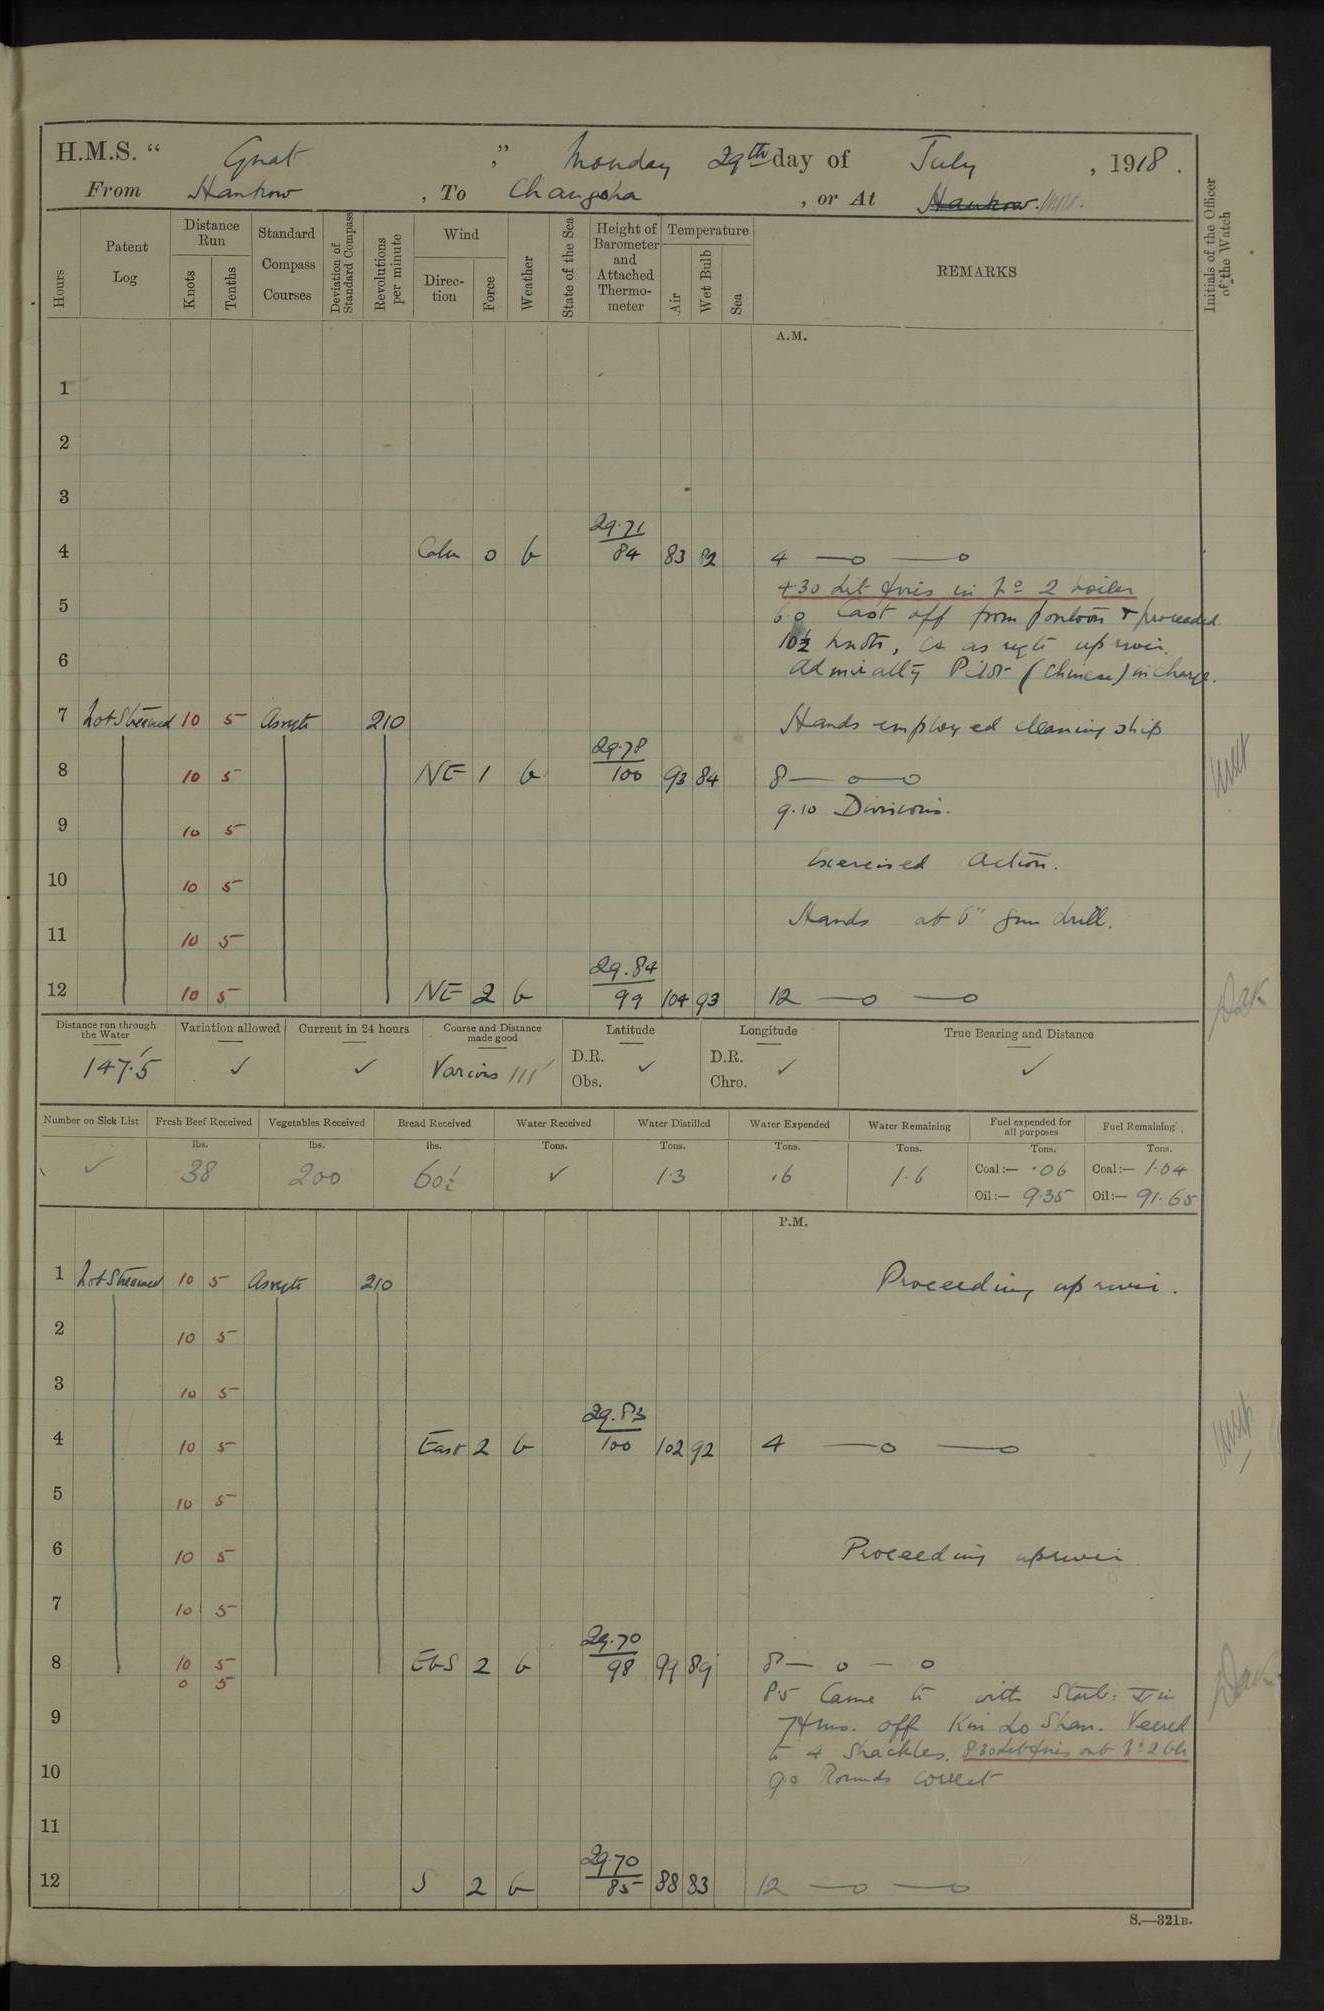 H.M.S. “ Gnat ,” Monday 29th day of July , 1918 .
From Hankow , To Changsha , or At Hankow.
Hours
Patent Log
Distance Run
Knots
Tenths
Standard Compass Courses
Deviation of Standard Compass
Revolutions per minute
Wind
Direction
Force
Weather
State of the Sea
Height of Barometer and Attached Thermometer
Temperature
Air
Wet Bulb
Sea
REMARKS
Initials of the Officer of the Watch
A.M.
1
2
3
4 Calm 0 b 29.71 84 83 82 4 —o —o
4.30 Lit fires in No 2 boiler
5
6.0 Cast off from pontoon & proceeded
10½ knots, Co as reqte up river.
6
Admiralty Pilot (Chinese) in charge.
7 Not Streamed 10 5 Asreqte 210 Hands employed cleaning ship
8 10 5 NE 1 b 29.78 100 93 84 8— o—o
9.10 Divisions.
9 10 5
Exercised Action.
10 10 5
Hands at 6" gun drill.
11 10 5
12 10 5 NE 2 b 29.84 99 104 93 12 —o —o
Distance run through the Water 147.5
Variation allowed ✓
Current in 24 hours ✓
Course and Distance made good Various 111
Latitude D.R. ✓ Obs.
Longitude D.R. ✓ Chro.
True Bearing and Distance ✓
Number on Sick List ✓
Fresh Beef Received lbs. 38
Vegetables Received lbs. 200
Bread Received lbs. 60½
Water Received Tons. ✓
Water Distilled Tons. 1.3
Water Expended Tons. .6
Water Remaining Tons. 1.6
Fuel expended for all purposes Tons. Coal:— .06 Oil:— 9.35
Fuel Remaining Tons. Coal:— 1.04 Oil:— 91.65
P.M.
1 Not Streamed 10 5 Asreqte 210 Proceeding up river.
2 10 5
3 10 5
4 10 5 East 2 b 29.83 100 102 92 4 —o —o
5 10 5
6 10 5 Proceeding upriver
7 10 5
8 10 5 EbS 2 b 29.70 98 99 89 8— o — o
0 5
8.5 Came to with Starb: in
9
7 fms. off Kin Lo Shan. Veered
to 4 Shackles. 8.30 Let fires out No 2 blr
10
9.0 Rounds correct
11
12 S 2 b 29.70 85 88 83 12 —o —o
S.—321B.